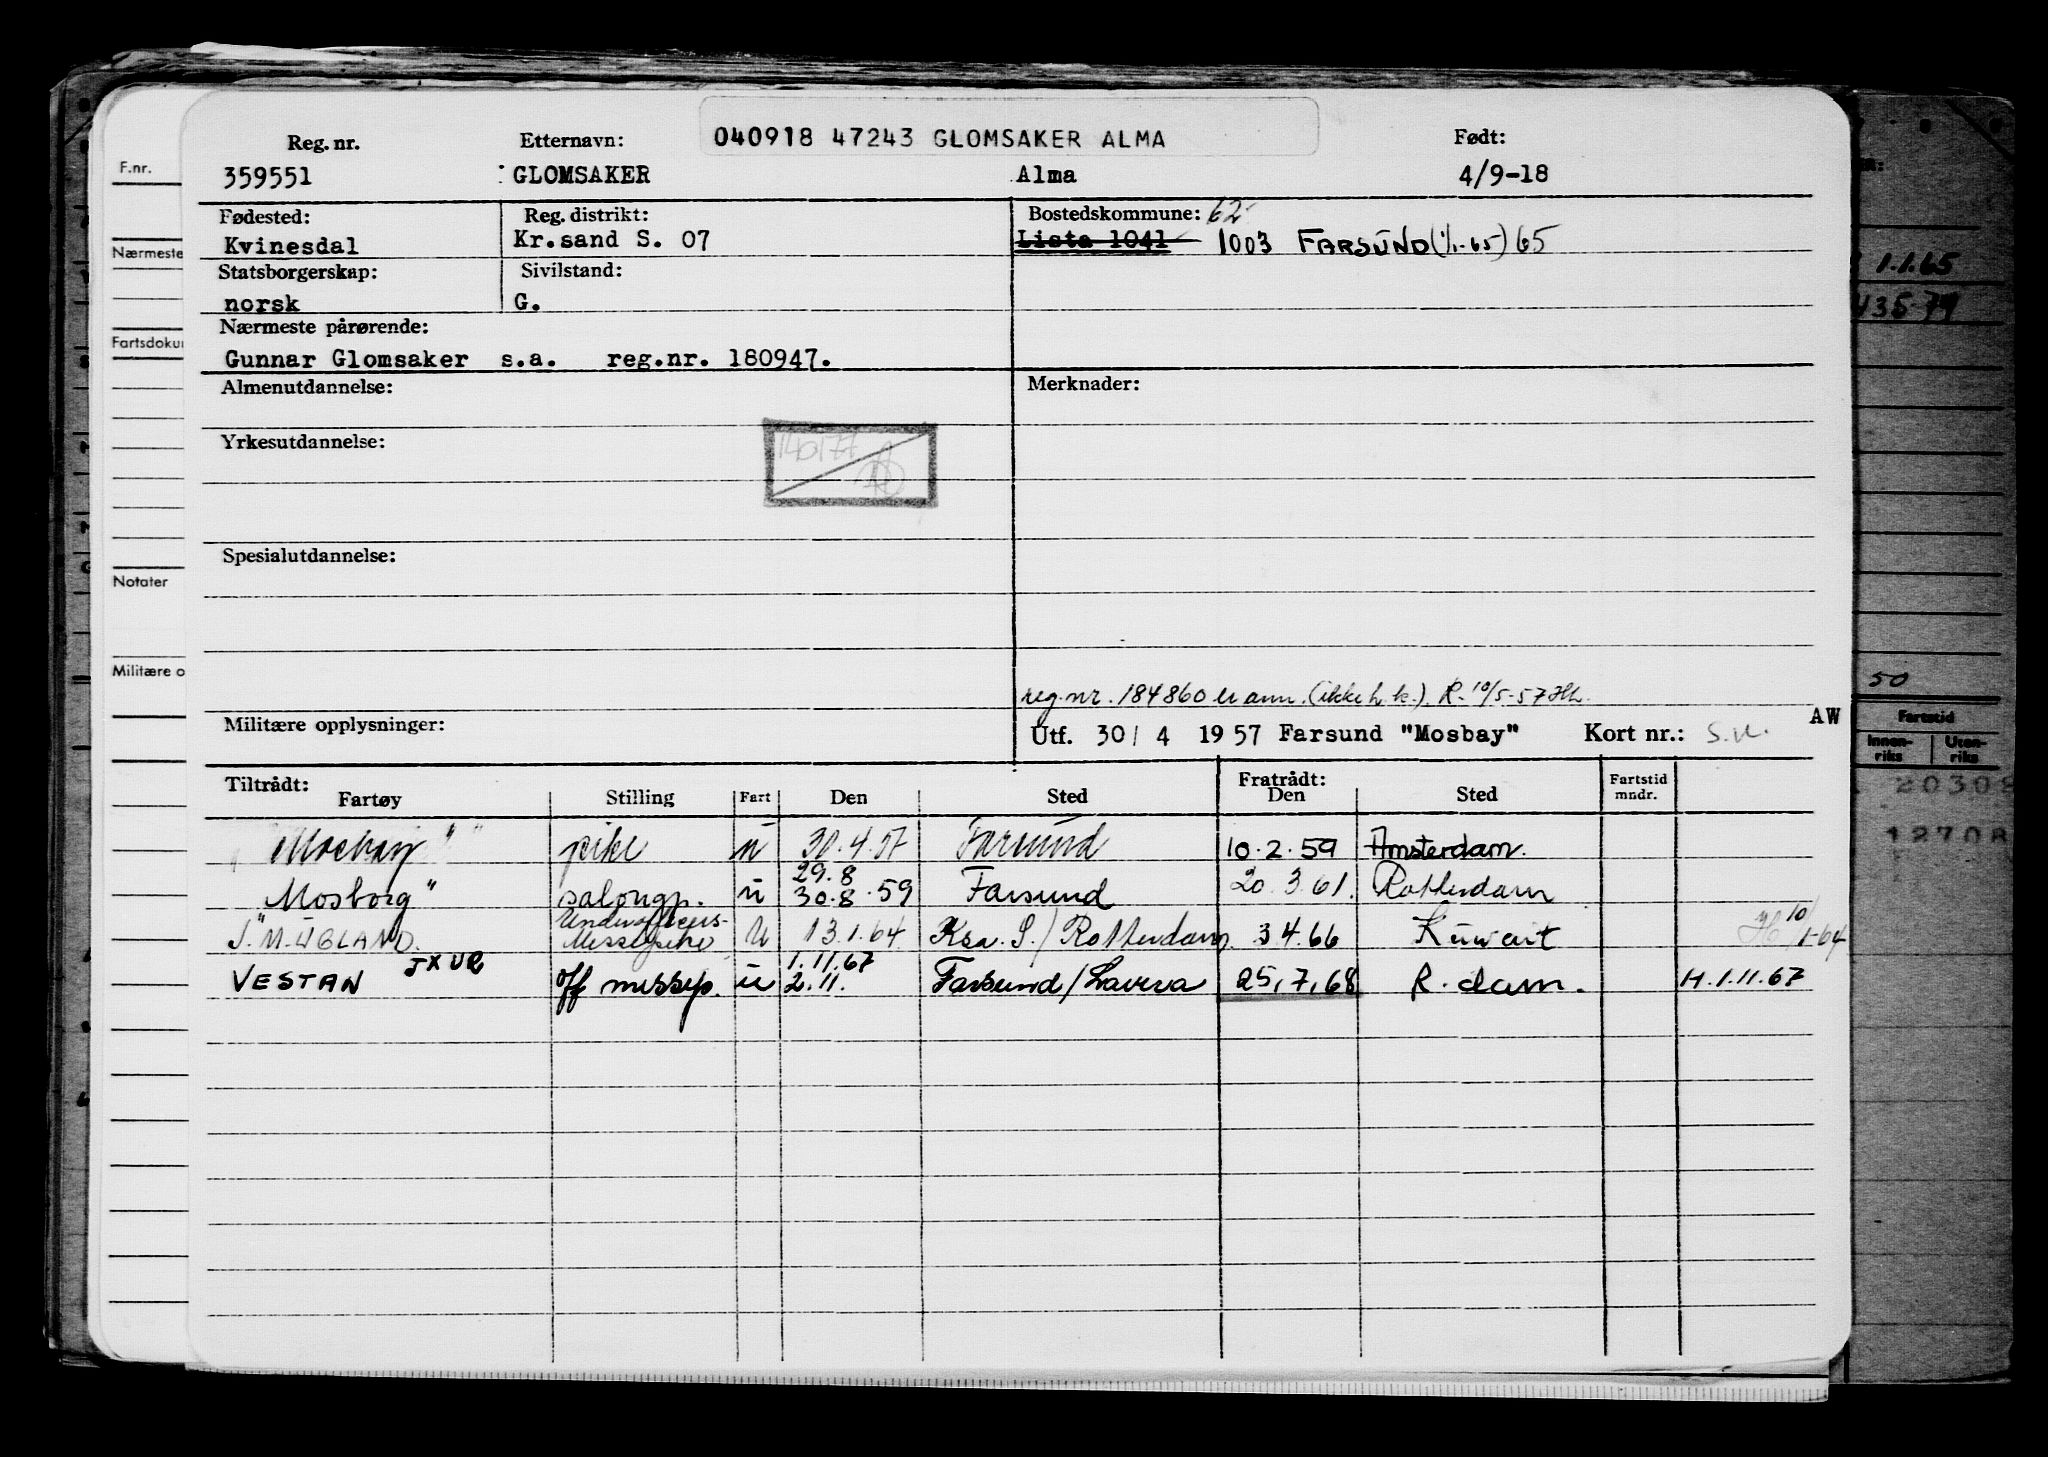 040918 47243 GLOMSAKER ALMA
Reg. nr. Etternavn: Født:
359551 GLOMSAKER Alma 4/9-18
Fødested: Reg. distrikt: Bostedskommune: 62
Kvinesdal Kr.sand S. 07 Lista 1041 1003 FARSUND (1/1-65) 65
Statsborgerskap: Sivilstand:
norsk G.
Nærmeste pårørende:
Gunnar Glomsaker s.a. reg.nr. 180947.
Almenutdannelse: Merknader:
Yrkesutdannelse:
140177
Spesialutdannelse:
reg.nr. 184860 er ann. (ikke h.k.). R. 10/5-57
Militære opplysninger: Utf. 30/ 4 1957 Farsund "Mosbay" Kort nr.: AW
Tiltrådt: Fratrådt: Fartstid
Fartøy Stilling Fart Den Sted Den Sted mndr.
"Mosbay" pike u 30.4.57 Farsund 10.2.59 Amsterdam.
29.8
Mosborg" salongp. u 30.8.59 Farsund 20.3.61. Rotterdam
Underofficers-
J." M. UGLAND. Messepike u 13.1.64 Ksa. S./Rotterdam 3.4.66 Kuwait 10/1-64
JXUR 1.11.67
VESTAN off messep. u 2.11. Farsund/Lavera 25.7.68 R.dam. H.1.11.67
F.nr.
Nærmeste
Fartsdoku
Notater
Militære o
1.1.65
50
Fartstid
Innen-
riks
Uten-
riks
20308
12708